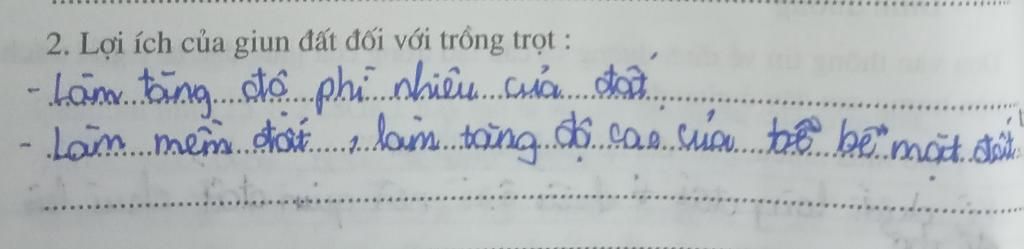 2. Lợi ích của giun đất đối với trồng trọt :
- Làm tăng độ phì nhiêu của đất
- Làm mềm đất , làm tăng độ cao của bề mặt đất